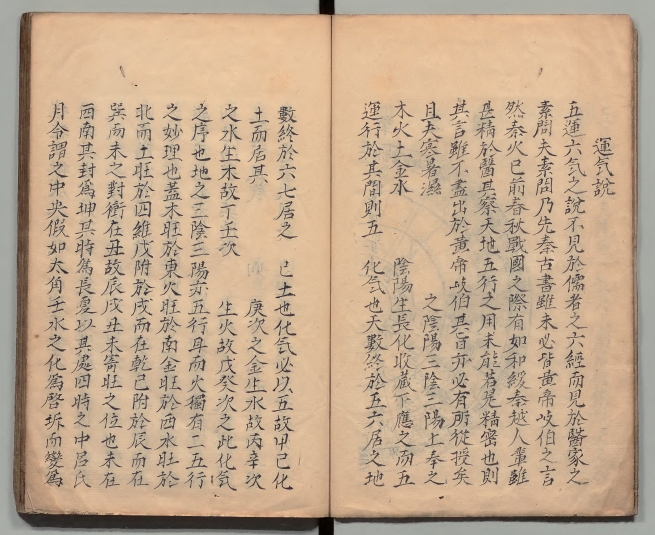 運氣說
五運六氣之說不見於儒者之六經而見於醫家之
素問夫素問乃先秦古書雖未必皆黃帝岐伯之言
然秦火已前春秋戰國之際有如和緩秦越人輩雖
甚精於醫其察天地五行之用未能若是精密也則
其言雖不盡出於黃帝岐伯其旨亦必有所從授矣
且夫寒暑濕 之陰陽三陰三陽上奉之
木火土金水 陰陽生長化收藏下應之而五
運行於其間則五 化氣也天數終於五六居之地
數終於六七居之 己土也化气必以五故甲己化
土而居其 庚次之金生水故丙辛次
之水生木故丁壬次 生火故戊癸次之此化气
之序也地之三陰三陽亦五行耳而火獨有二五行
之妙理也盖木旺於東火旺於南金旺於西水旺於
北而土旺於四維戊附於戌而在乾己附於辰而在
巽而未之對衝在丑故辰戌丑未寄旺之位也未在
西南其卦爲坤其時爲長夏以其處四時之中呂氏
月令謂之中央假如太角壬水之化爲啓坼而變爲